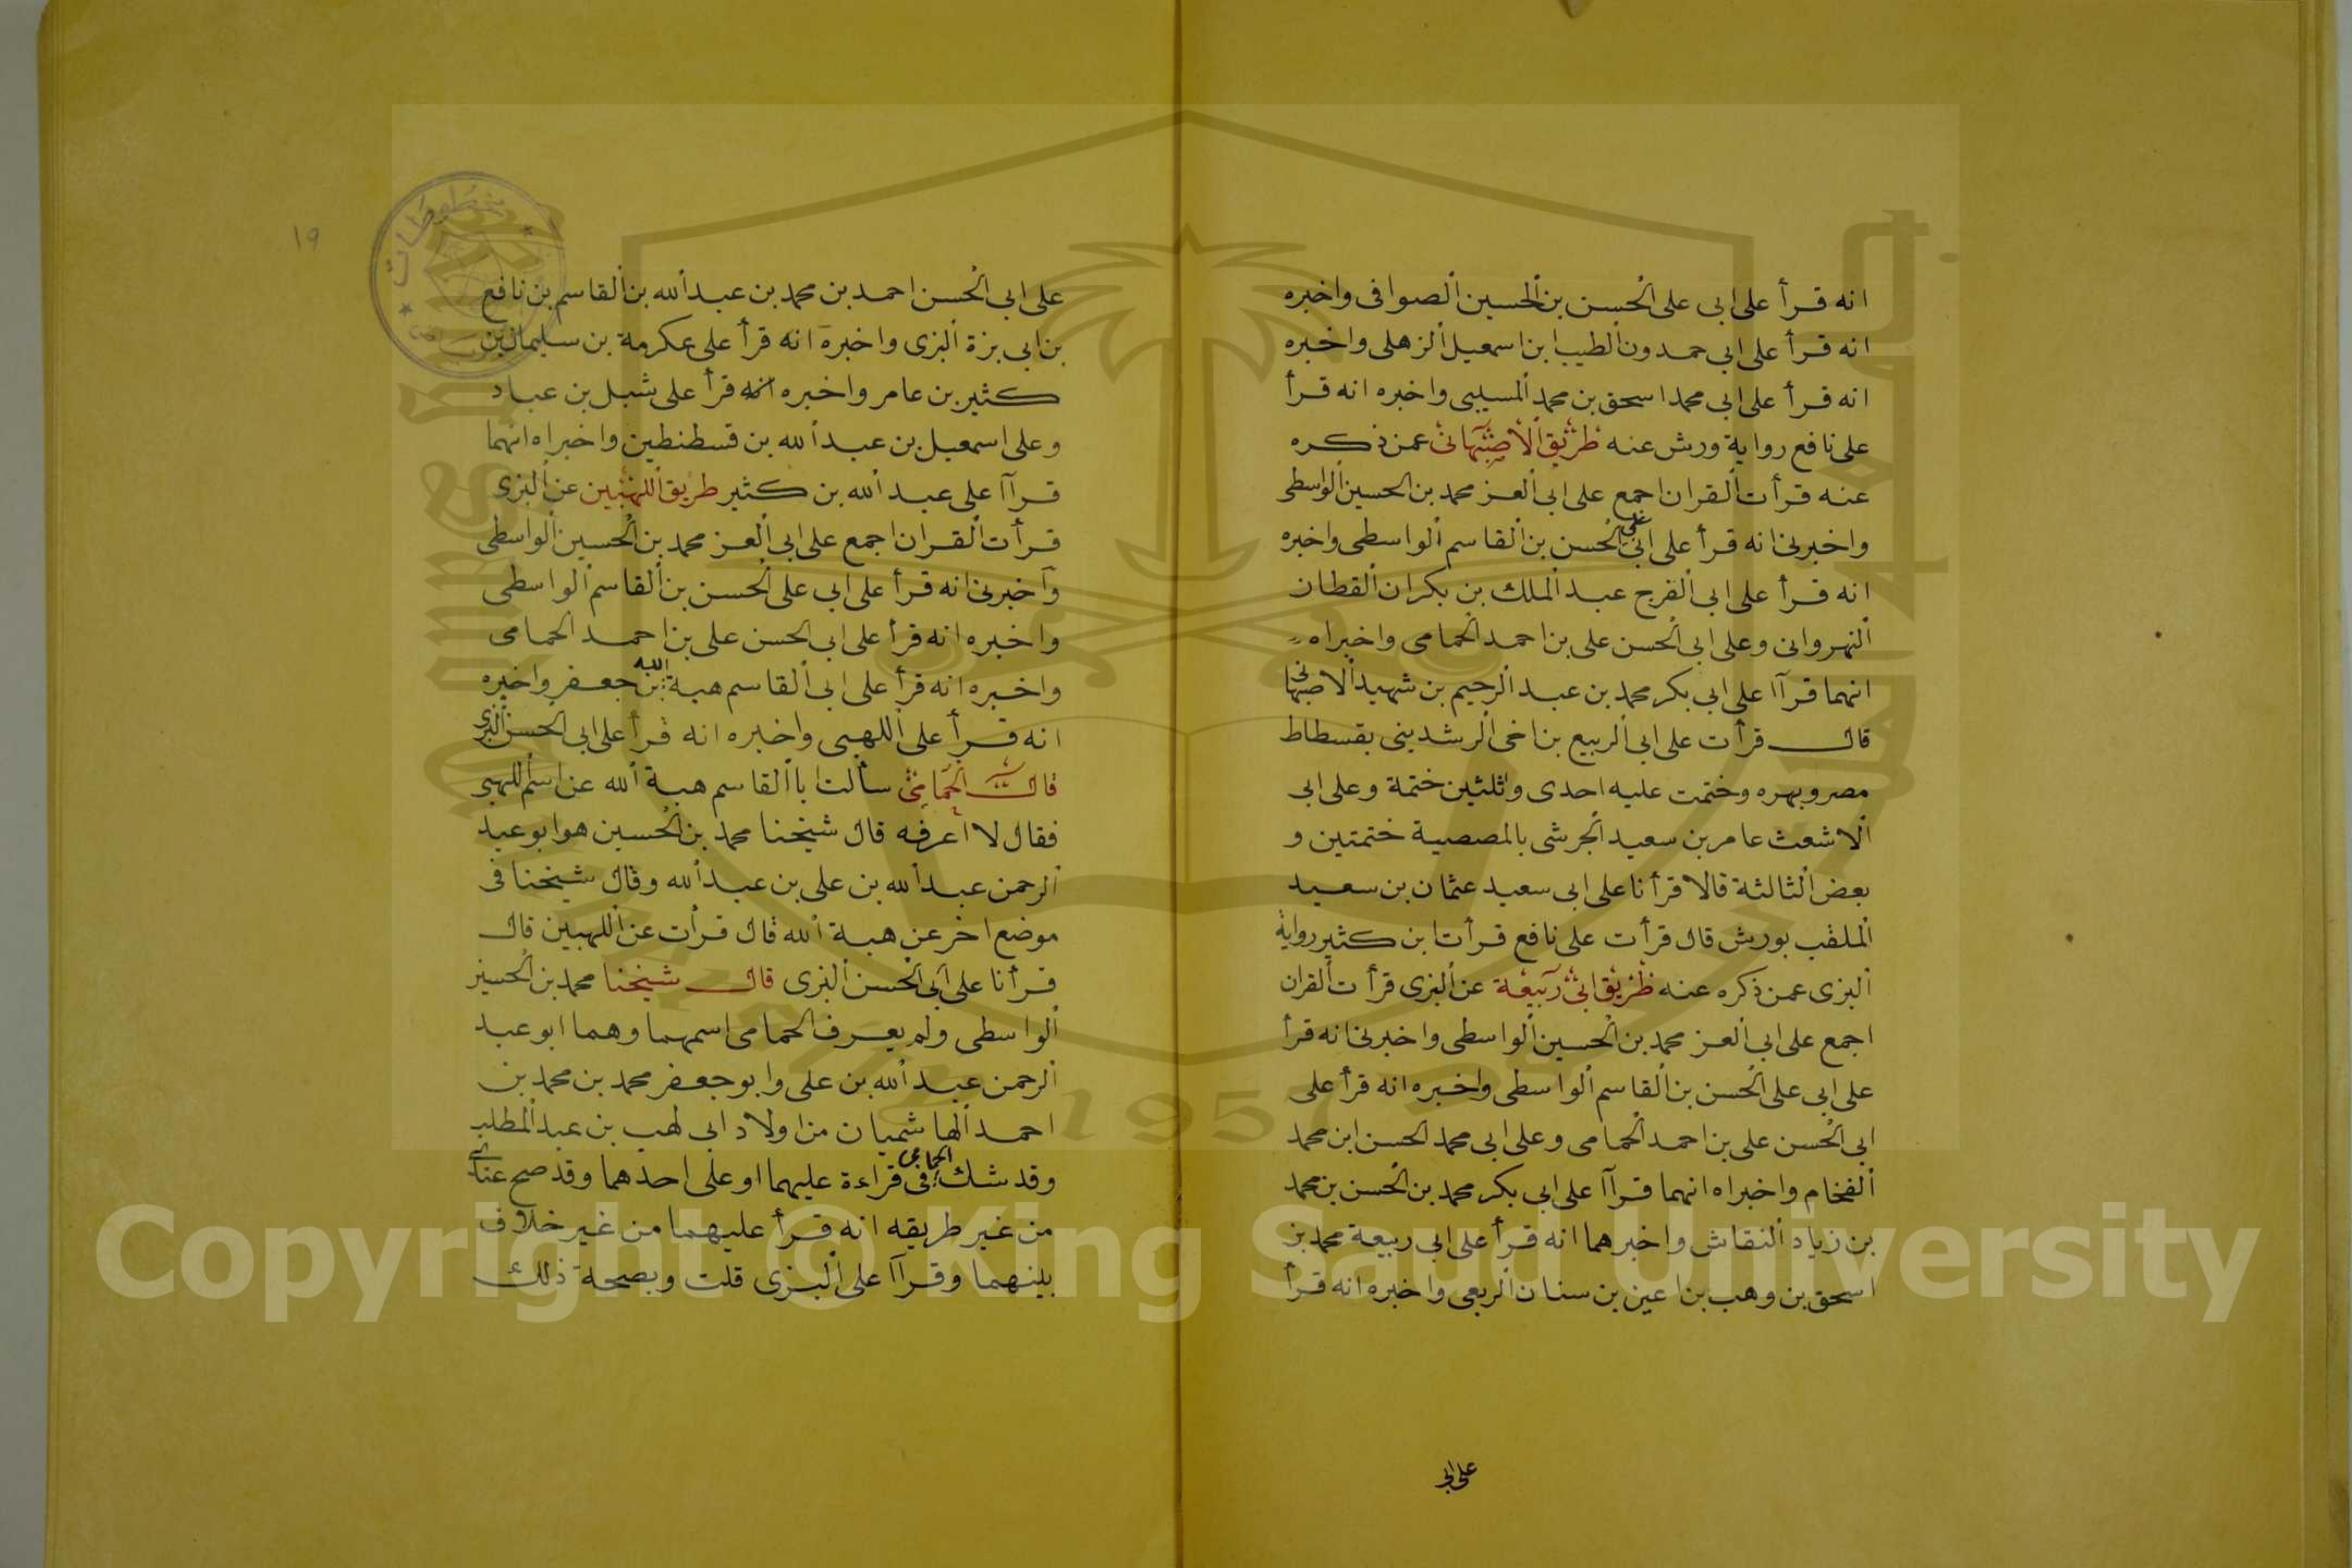 انه قرأ على ابى على الحسن بن الحسين الصوافى واخبره
انه قرأ على ابى حمدون الطيب ابن اسمعيل الزهلى واخبره
انه قرأ على ابى محمد اسحق بن محمد المسيبى واخبره انه قرأ
على نافع رواية ورش عنه طريق الاصبهانى عمن ذكره
عنه قرأت القران اجمع على ابى العز محمد بن الحسين الواسطى
واخبرنى انه قرأ على ابى على الحسن بن القاسم الواسطى واخبره
انه قرأ على ابى الفرج عبد الملك بن بكران القطان
النهروانى وعلى ابى الحسن على بن احمد الحمامى واخبراه
انهما قرآا على ابى بكر محمد بن عبد الرحيم بن شهيد الاصبهانى
قال قرأت على ابى الربيع بن اخى الرشدينى بقسطاط
مصر وبهره وختمت عليه احدى وثلثين ختمة وعلى ابى
الاشعث عامر بن سعيد الجرشى بالمصصية ختمتين و
بعض الثالثة قالا قرأنا على ابى سعيد عثمان بن سعيد
الملقب بورش قال قرأت على نافع قرأت ابن كثير رواية
البزى عمن ذكره عنه طريق ابى ربيعة عن البزى قرأت القران
اجمع على ابى العز محمد بن الحسين الواسطى واخبرنى انه قرأ
على ابى على الحسن بن القاسم الواسطى واخبره انه قرأ على
ابى الحسن على بن احمد الحمامى وعلى ابى محمد الحسن ابن محمد
الفخام واخبراه انهما قرآا على ابى بكر محمد بن الحسن بن محمد
بن زياد النقاش واخبرهما انه قرأ على ابى ربيعة محمد بن
اسحق بن وهب بن اعين بن سنان الربعى واخبره انه قرأ
على ابى
١٩
على ابى الحسن احمد بن محمد بن عبد الله بن القاسم بن نافع
بن ابى بزة البزى واخبره انه قرأ على عكرمة بن سليمان بن
كثير بن عامر واخبره انه قرأ على شبل بن عباد
وعلى اسمعيل بن عبد الله بن قسطنطين واخبراه انهما
قرآا على عبد الله بن كثير طريق اللهبيين عن البزى
قرأت القران اجمع على ابى العز محمد بن الحسين الواسطى
واخبرنى انه قرأ على ابى على الحسن بن القاسم الواسطى
واخبره انه قرأ على ابى الحسن على بن احمد الحمامى
واخبره انه قرأ على ابى القاسم هبة الله بن جعفر واخبره
انه قرأ على اللهبى واخبره انه قرأ على ابى الحسن البزى
قال الحمامى سألت ابا القاسم هبة الله عن اسم اللهبى
فقال لا اعرفه قال شيخنا محمد بن الحسين هو ابو عبد
الرحمن عبد الله بن على بن عبد الله وقال شيخنا فى
موضع اخر عن هبة الله قال قرأت عن اللهبيين قال
قرأنا على ابى الحسن البزى قال شيخنا محمد بن الحسين
الواسطى ولم يعرف الحمامى اسمهما وهما ابو عبد
الرحمن عبد الله بن على وابو جعفر محمد بن محمد بن
احمد الهاشميان من اولاد ابى لهب بن عبد المطلب
وقد شك الحمامى فى قراءة عليهما او على احدهما وقد صح عنا
من غير طريقه انه قرأ عليهما من غير خلاف
بينهما وقرآا على البزى قلت وبصحة ذلك
مخطوطات
1957
Copyright © King Saud University